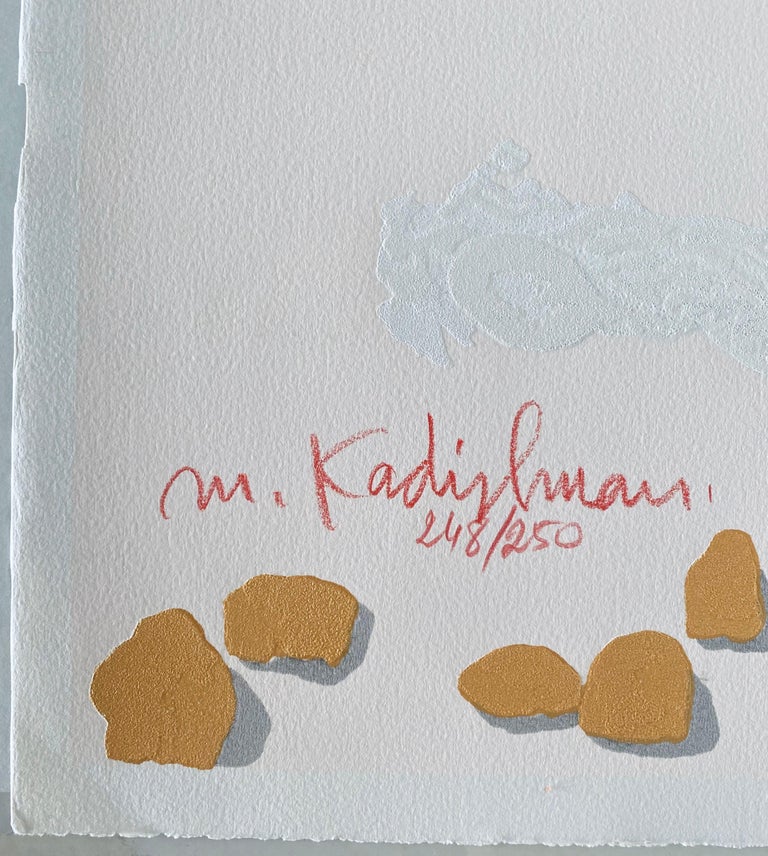 m. Kadishman.
248/250